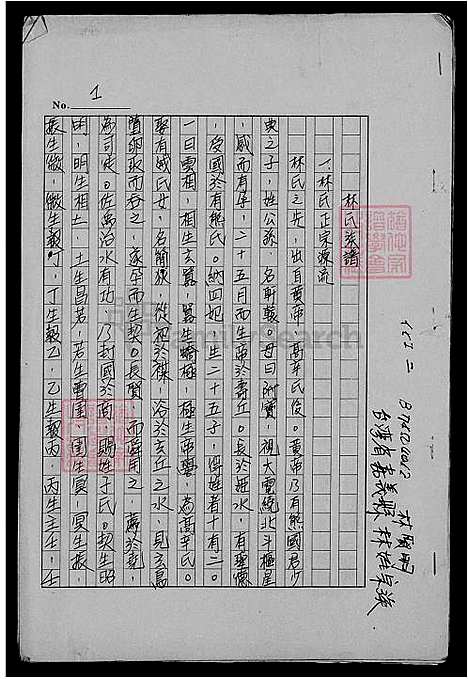 No. 1
林氏族譜
一林氏正宗源流
林氏之先，出自黃帝，高辛氏後。黃帝乃有熊國君少
典之子，姓公孫，名軒轅。母曰附寶，視大電繞北斗樞星
，感而有孕，二十五月而生帝於壽丘。長於姬水，有聖德
，受國於有熊氏。納四妃，生二十五子，得姓者十有二。
一曰玄囂，囂生蟜極，極生帝嚳，為高辛氏。
娶有娀氏女，名簡狄，從祀於禖，浴於玄丘之水，見玄鳥
墮卵取而吞之，遂孕而生契。長賢，而舜用之，薦於堯，
為司徒。佐禹治水有功，乃封國於商，賜姓子氏。契生昭
明，明生相土，土生昌若，若生曹圉，圉生冥，冥生振，
振生微，微生報丁，丁生報乙，乙生報丙，丙生主壬，壬
台灣省嘉義縣 林姓宗族
FamilySearch